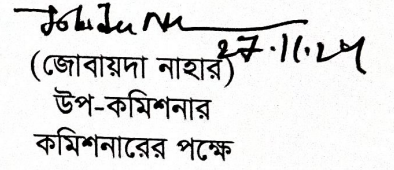 27.11.24
(জোবায়দা নাহার)
উপ-কমিশনার
কমিশনারের পক্ষে